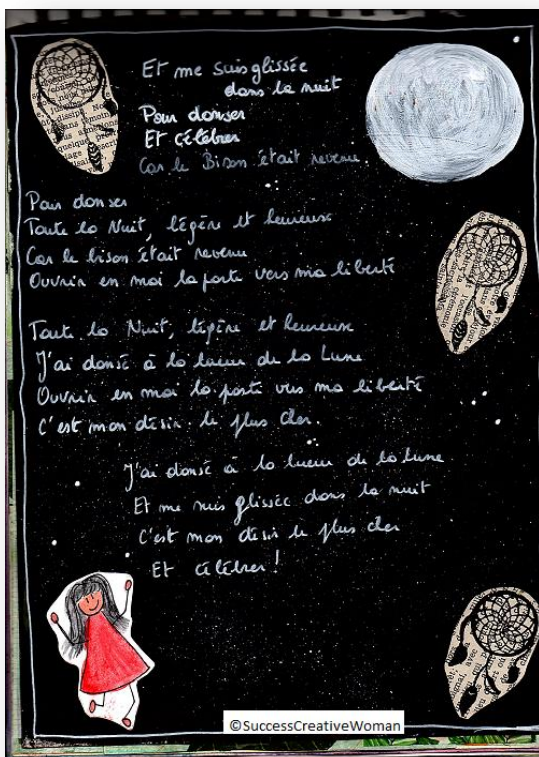 Et me suis glissée
dans la nuit
Pour danser
Et célébrer
Car le Bison était revenu
Pour danser
Toute la Nuit, légère et heureuse
Car le bison était revenu
Ouvrir en moi la porte vers ma liberté
Toute la Nuit, légère et heureuse
J'ai dansé à la lueur de la Lune
Ouvrir en moi la porte vers ma liberté
C'est mon désir le plus cher.
J'ai dansé à la lueur de la lune
Et me suis glissée dans la nuit
C'est mon désir le plus cher
Et célébrer !
©SuccessCreativeWoman